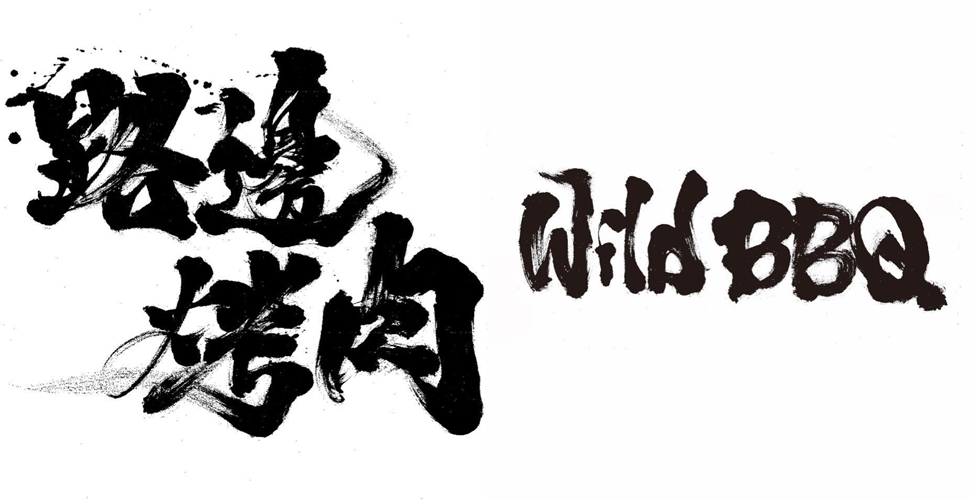 路邊
烤肉
Wild BBQ